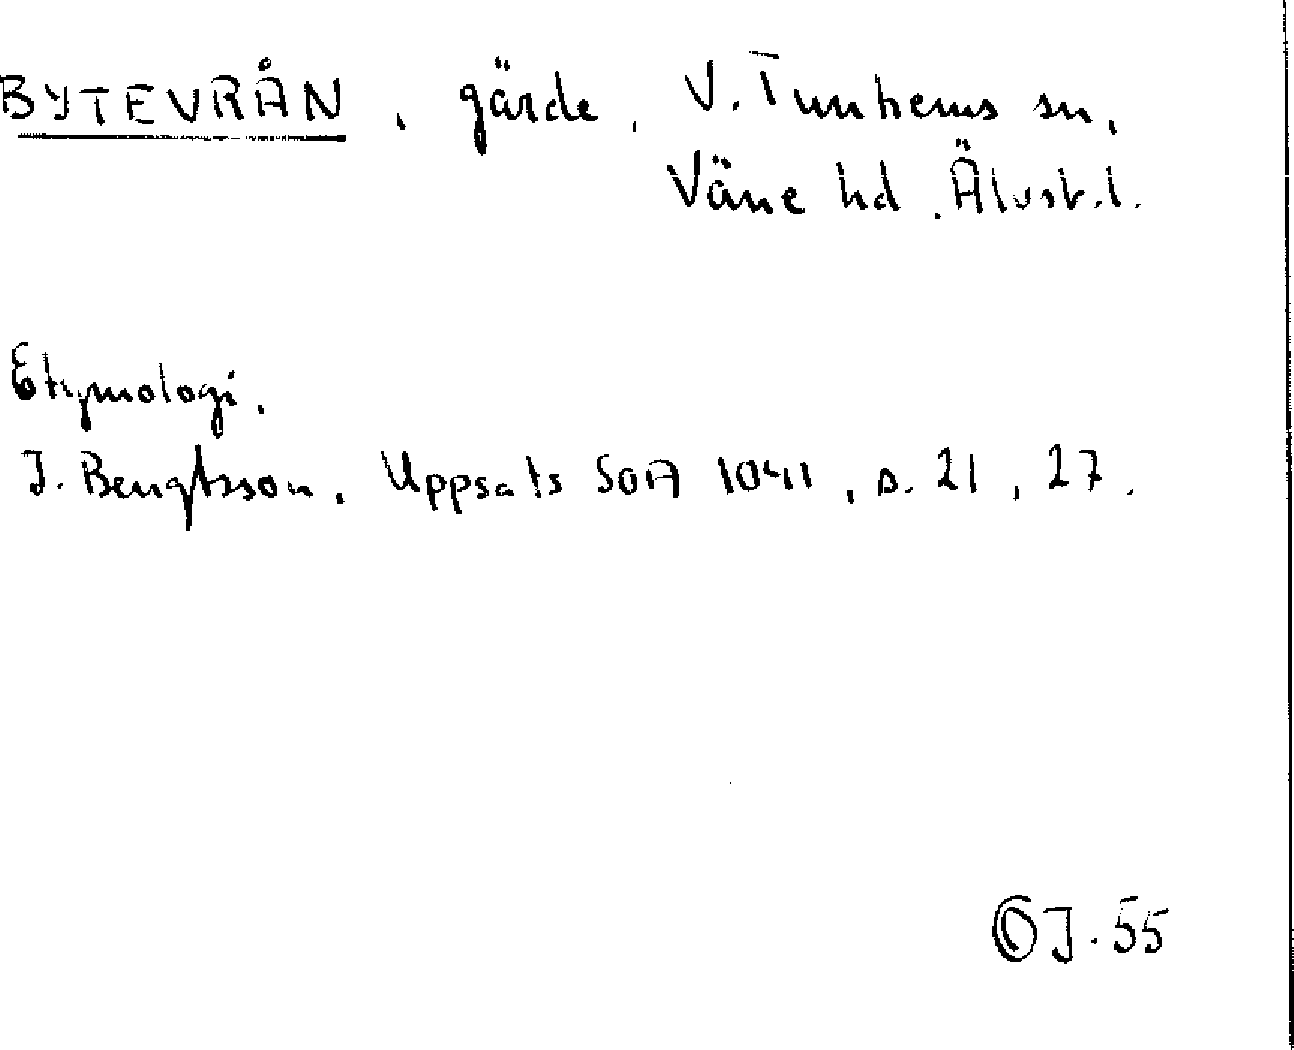 BYTEVRÅN, gärde, V. Tunhems sn,
Väne hd. Älvsb.l.
Etymologi.
J. Bengtsson, Uppsats SOA 1041, s. 21, 27.
OJ. 55